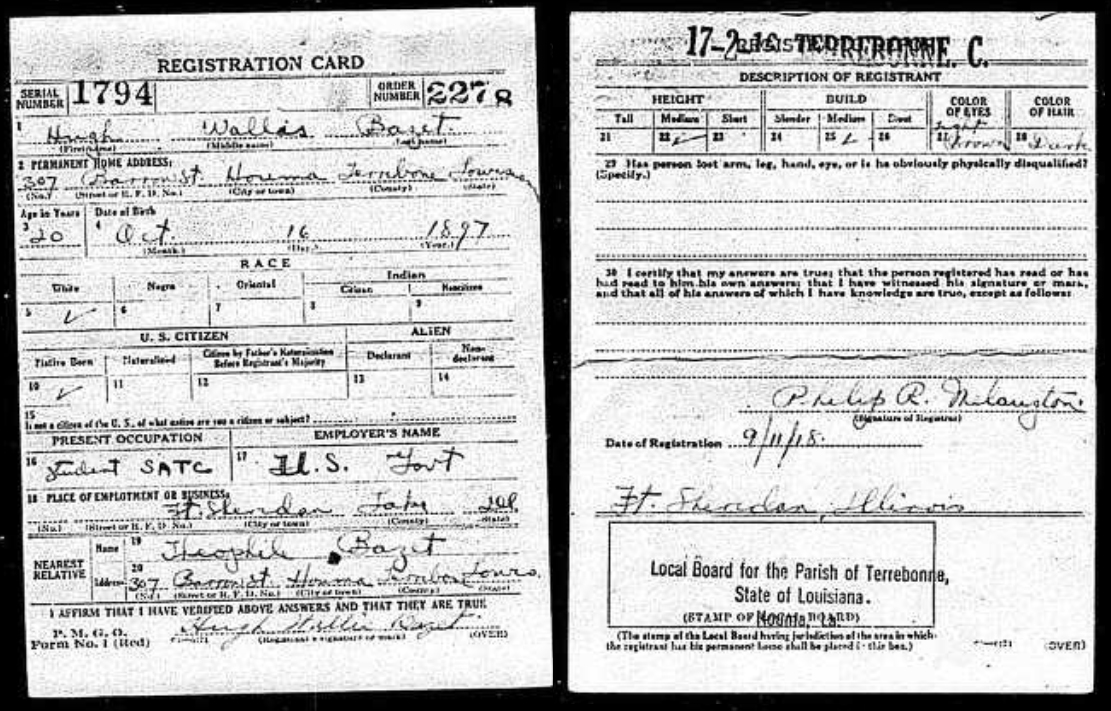 REGISTRATION CARD
SERIAL NUMBER 1794 ORDER NUMBER 2278
1 Hugh Wallis Bazet
(First name) (Middle name) (Last name)
2 PERMANENT HOME ADDRESS:
307 Barrow St. Houma Terrebone Louisiana
(No.) (Street or R. F. D. No.) (City or town) (County) (State)
Age in Years Date of Birth
3 20 4 Oct. 16 1897
(Month.) (Day.) (Year.)
RACE
White Negro Oriental Indian
Citizen Noncitizen
5 ✓ 6 7 8 9
U. S. CITIZEN ALIEN
Native Born Naturalized Citizen by Father's Naturalization Before Registrant's Majority Declarant Non-declarant
10 ✓ 11 12 13 14
15
If not a citizen of the U. S., of what nation are you a citizen or subject?
PRESENT OCCUPATION EMPLOYER'S NAME
16 Student SATC 17 U.S. Govt
18 PLACE OF EMPLOYMENT OR BUSINESS:
Ft. Sheridan Lake Ill
(No.) (Street or R. F. D. No.) (City or town) (County) (State)
NEAREST RELATIVE
Name 19 Theophile Bazet
Address 20 307 Barrow St. Houma
(No.) (Street or R. F. D. No.) (City or town) (County) (State)
I AFFIRM THAT I HAVE VERIFIED ABOVE ANSWERS AND THAT THEY ARE TRUE
P. M. G. O.
Form No. 1 (Red)
Hugh Wallis Bazet
(Registrant's signature or mark)
(OVER)
17-2-16 TERREBONNE. C.
DESCRIPTION OF REGISTRANT
HEIGHT BUILD COLOR OF EYES COLOR OF HAIR
Tall Medium Short Slender Medium Stout
21 22 ✓ 23 24 25 ✓ 26 27 Light Brown 28 Dark
29 Has person lost arm, leg, hand, eye, or is he obviously physically disqualified?
(Specify.)
30 I certify that my answers are true; that the person registered has read or has
had read to him his own answers; that I have witnessed his signature or mark,
and that all of his answers of which I have knowledge are true, except as follows:
Philip R.
(Signature of Registrar)
Date of Registration 9/11/18.
Ft. Sheridan, Illinois
Local Board for the Parish of Terrebonne,
State of Louisiana.
Houma, La.
(STAMP OF LOCAL BOARD)
(The stamp of the Local Board having jurisdiction of the area in which
the registrant has his permanent home shall be placed in this box.)
(OVER)